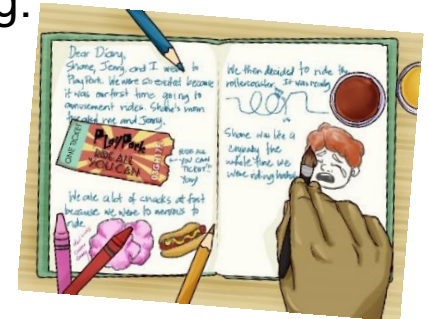 g.
Dear Diary,
Shane, Jenny, and I went to
PlayPark. We were so excited because
it was our first time going to
amusement rides. Shane's mom
treated me and Jenny.
ONE TICKET
PlayPark
RIDE ALL
YOU CAN
RIDE ALL
YOU CAN
TICKET!
Yay!
We ate a lot of snacks at first
because we were to nervous to
ride.
We then decided to ride the
rollercoaster. It was really
Shane was like a
crybaby the
whole time we
were riding